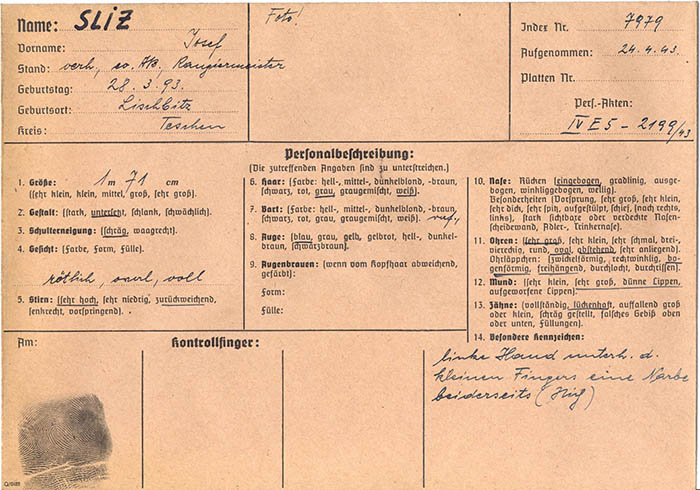 Name: SLIZ
Vorname: Josef
Stand: verh., Rangiermeister
Geburtstag: 28.3.93.
Geburtsort: Lischbitz
Kreis: Teschen
Foto!
Index Nr. 7979
Aufgenommen: 24.4.43
Platten Nr.
Pers.-Akten:
IV E 5 - 2199/43
Personalbeschreibung:
(Die zutreffenden Angaben sind zu unterstreichen.)
1. Größe: 1 m 71 cm
(sehr klein, klein, mittel, groß, sehr groß).
2. Gestalt: (stark, untersetzt, schlank, schwächlich).
3. Schulterneigung: (schräg, waagrecht).
4. Gesicht: (Farbe, Form, Fülle).
rötlich, oval, voll
5. Stirn: (sehr hoch, sehr niedrig, zurückweichend,
senkrecht, vorspringend).
6. Haar: (Farbe: hell-, mittel-, dunkelblond, -braun,
schwarz, rot, grau, graugemischt, weiß).
7. Bart: (Farbe: hell-, mittel-, dunkelblond, -braun,
schwarz, rot, grau, graugemischt, weiß).
8. Auge: (blau, grau, gelb, gelbrot, hell-, dunkel-
braun, schwarzbraun).
9. Augenbrauen: (wenn vom Kopfhaar abweichend,
gefärbt):
Form:
Fülle:
10. Nase: Rücken (eingebogen, gradlinig, ausge-
bogen, winkliggebogen, wellig).
Besonderheiten (Vorsprung, sehr groß, sehr klein,
sehr dick, sehr spitz, aufgestülpt, schief, [nach rechts,
links), stark sichtbare oder verdeckte Nasen-
scheidewand, Adler-, Trinkernase).
11. Ohren: (sehr groß, sehr klein, sehr schmal, drei-
viereckig, rund, oval, abstehend, sehr anliegend).
Ohrläppchen: (zwickelförmig, rechtwinklig, bo-
genförmig, freihängend, durchlocht, durchrissen).
12. Mund: (sehr klein, sehr groß, dünne Lippen,
aufgeworfene Lippen).
13. Zähne: (vollständig, lückenhaft, auffallend groß
oder klein, schräg gestellt, falsches Gebiß oben
oder unten, Füllungen).
14. Besondere Kennzeichen:
linke Hand unterh. d.
kleinen Fingers eine Narbe
beiderseits
Am:
Kontrollfinger: